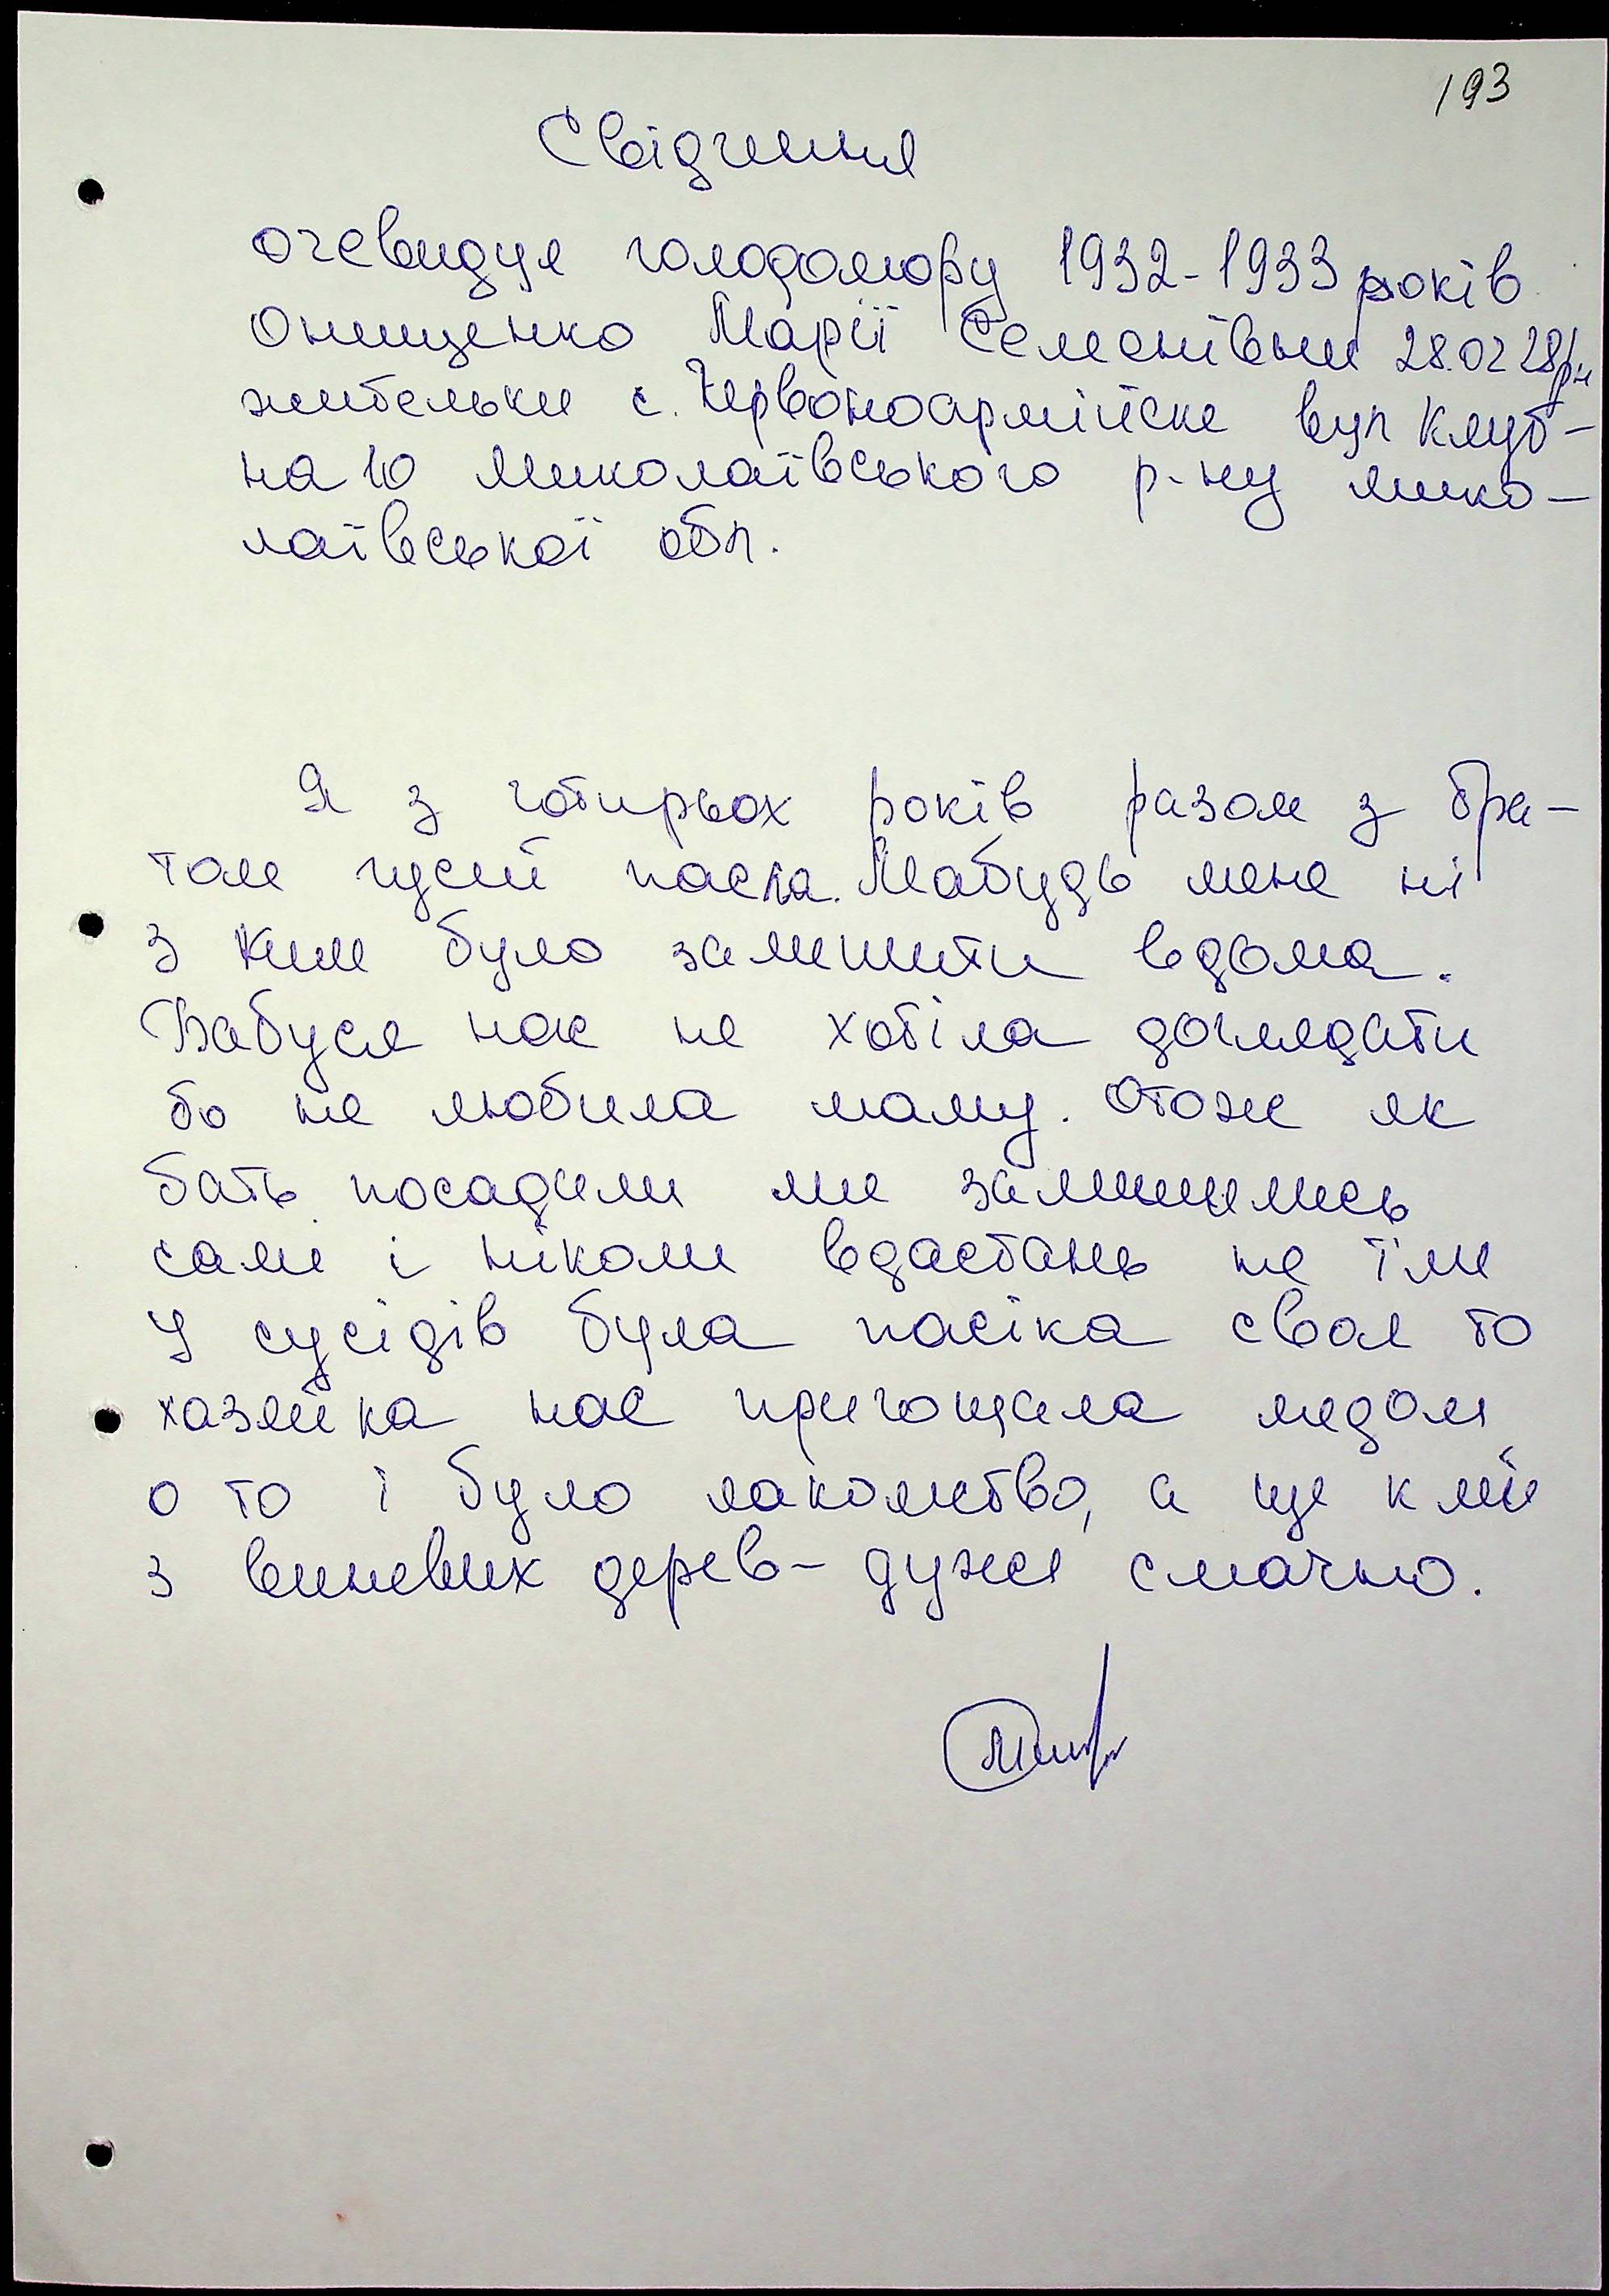 193
Свідчення
очевидця голодомору 1932-1933 років
Онищенко Марії Семенівни 28.02 28рн
жительки с. Червоноармійське вул Клуб-
на 10 Миколаївського р-ну мико-
лаївської обл.
Я з чотирьох років разом з бра-
том гусей пасла. Мабудь мене ні
з ким було залишити вдома.
Бабуся нас не хотіла доглядати
бо не любила маму. Отож як
бать посадили ми залишились
самі і ніколи вдосталь не їли
У сусідів була пасіка своя то
хазяйка нас пригощала медом
о то і було лакомство, а ще клей
з вишевих дерев- дуже смачно.